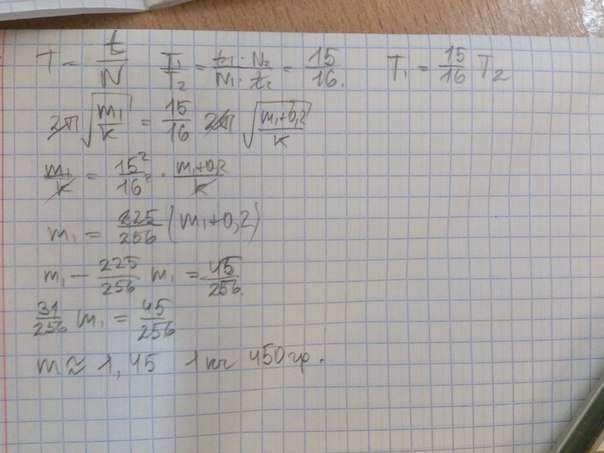 T = t/N T₁/T₂ = t₁·N₂/N₁·t₂ = 15/16. T₁ = 15/16 T₂
2π√(m₁/k) = 15/16 2π√(m₁+0,2/k)
m₁/k = 15²/16² · m₁+0,2/k
m₁ = 225/256 (m₁+0,2)
m₁ - 225/256 m₁ = 45/256.
31/256 m₁ = 45/256
m ≈ 1,45 1 кг 450 гр.